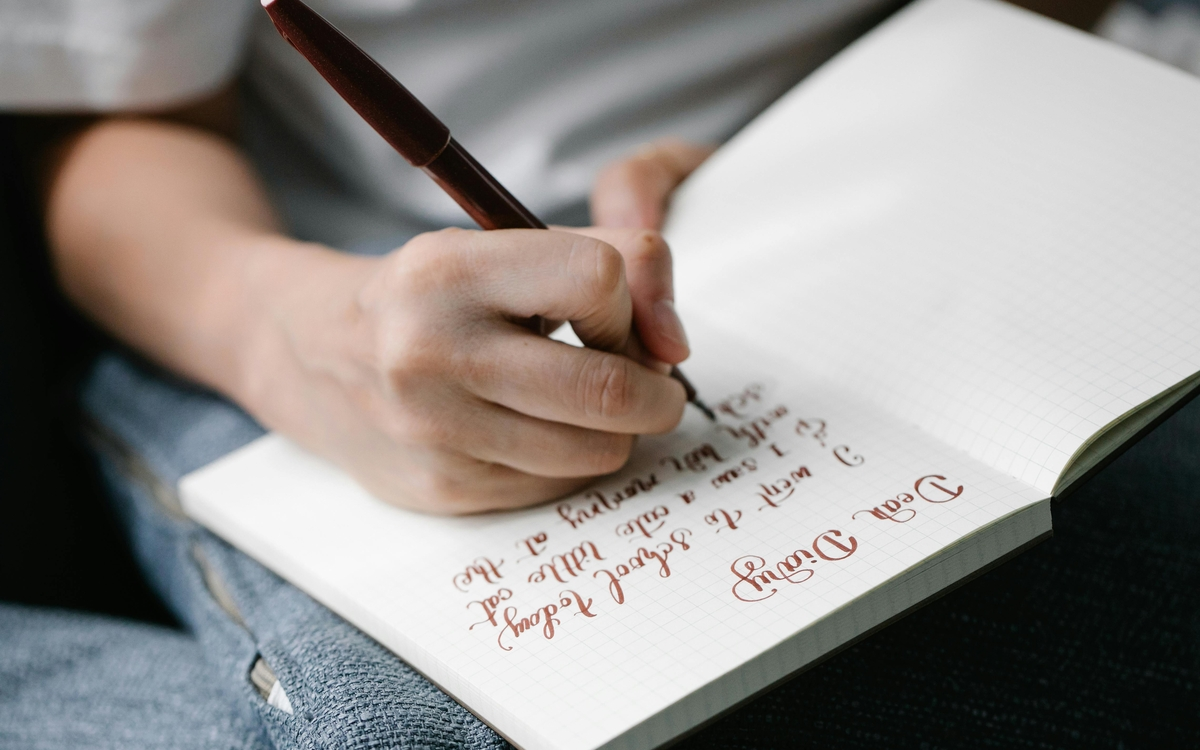 Dear Diary
I went to school today
& I saw a cute little cat
with her mommy at the
sch